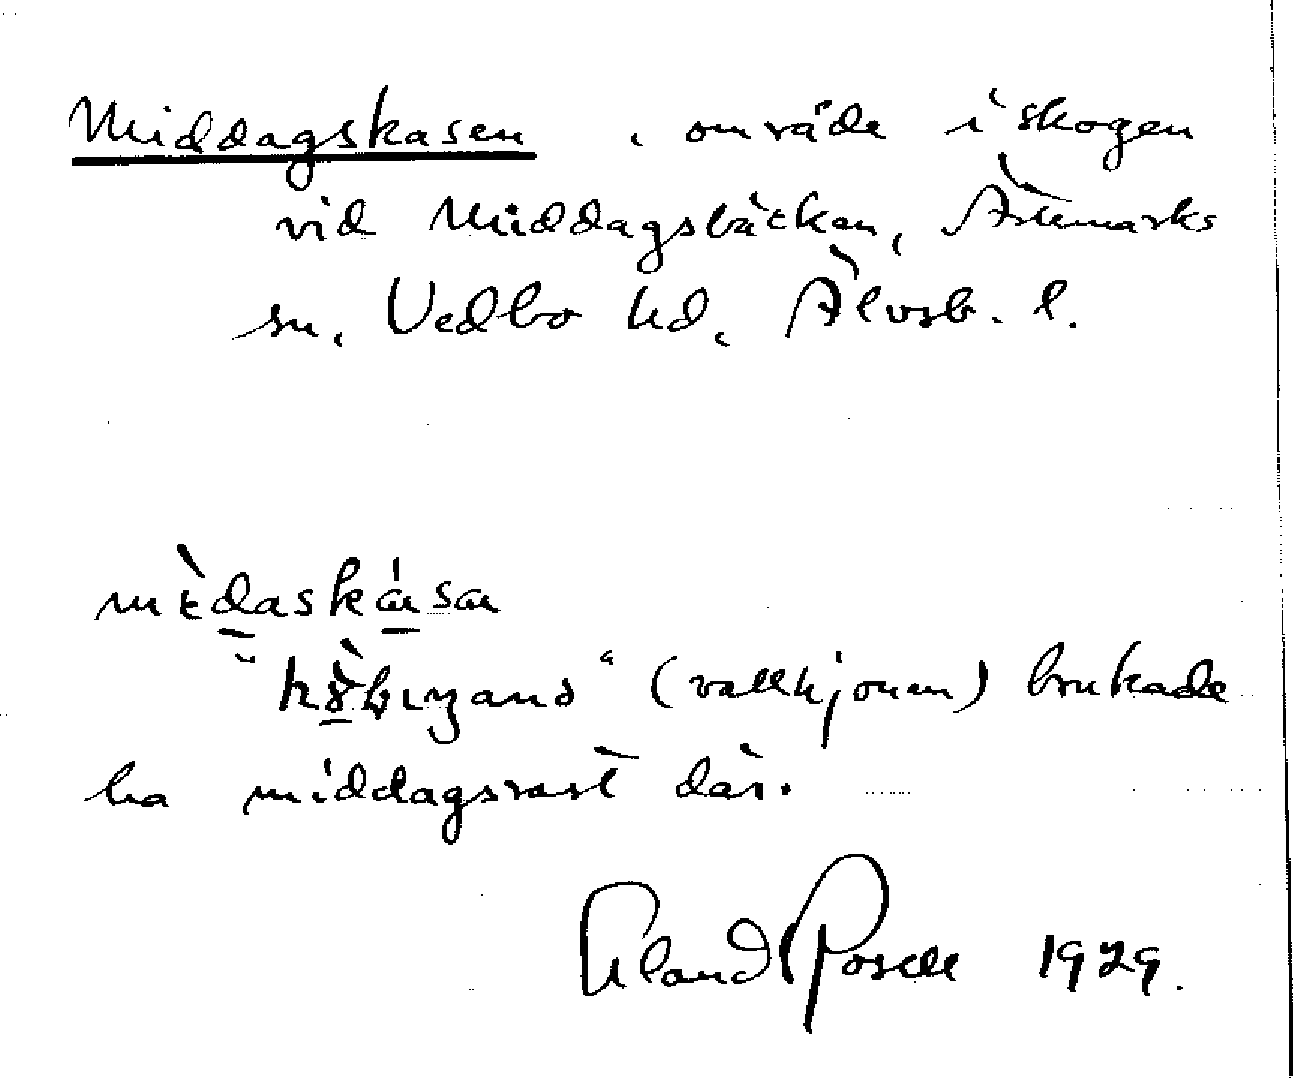 Middagskasen, område i skogen
vid Middagsbäcken, Ärtemarks
sn. Vedbo hd. Älvsb. l.
mèdaskásan
" (vallhjonen) brukade
ha middagsrast där.
Erland Rosell 1929.